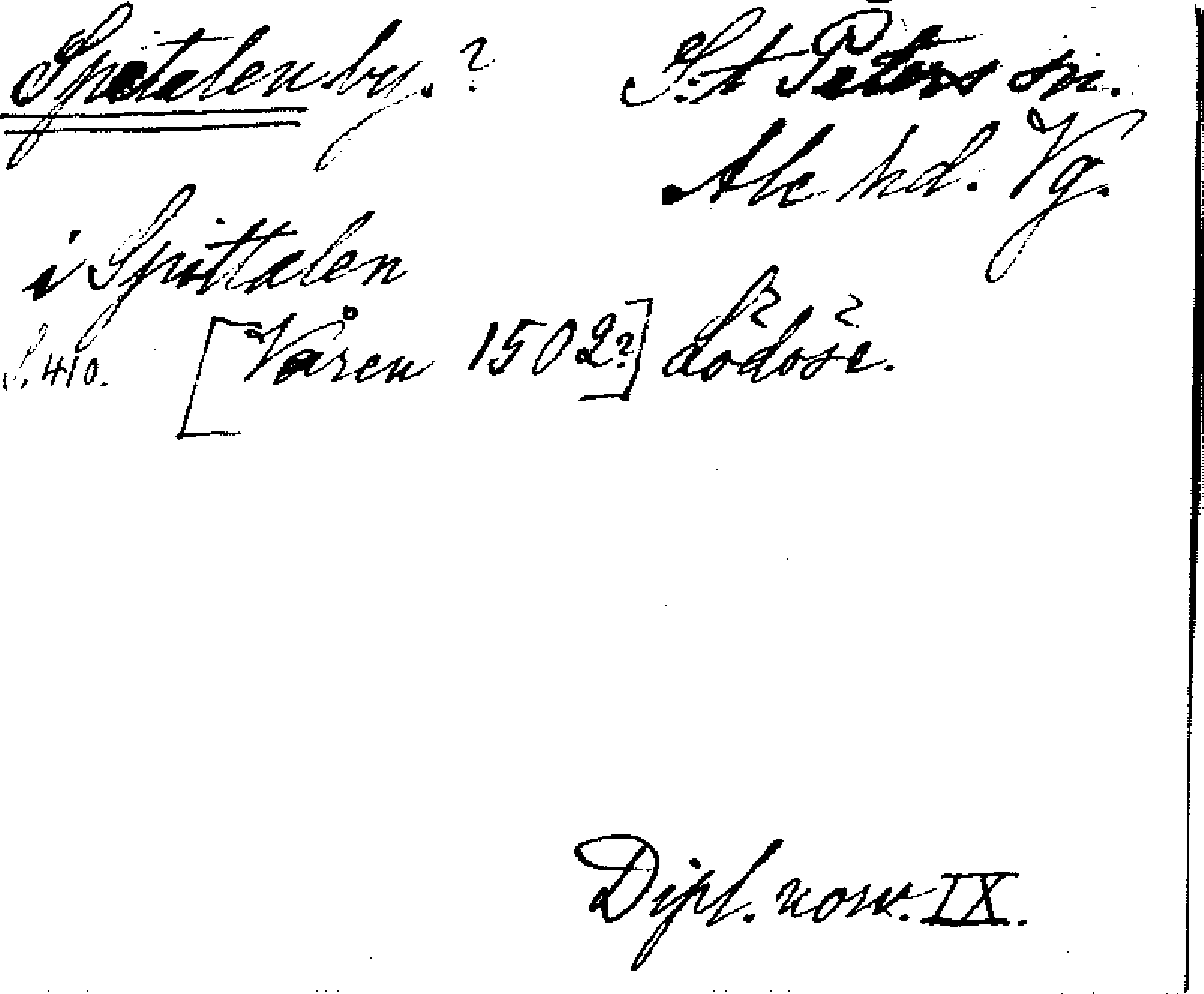 Spetalen by. ? S:t Peters sn.
Ale hd. Vg.
i Spittalen
S. 410. [Våren 1502?] Lödöse.
Dipl. norv. IX.